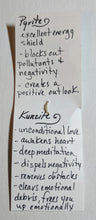 Pyrite
excellent energy
shield
- blocks out
pollutants &
negativity
- creates a
positive outlook.
Kunzite
- unconditional love
- awakens heart
- deep meditation
- dispels negativity
- removes obstacles
- clears emotional
debris, frees you
up emotionally